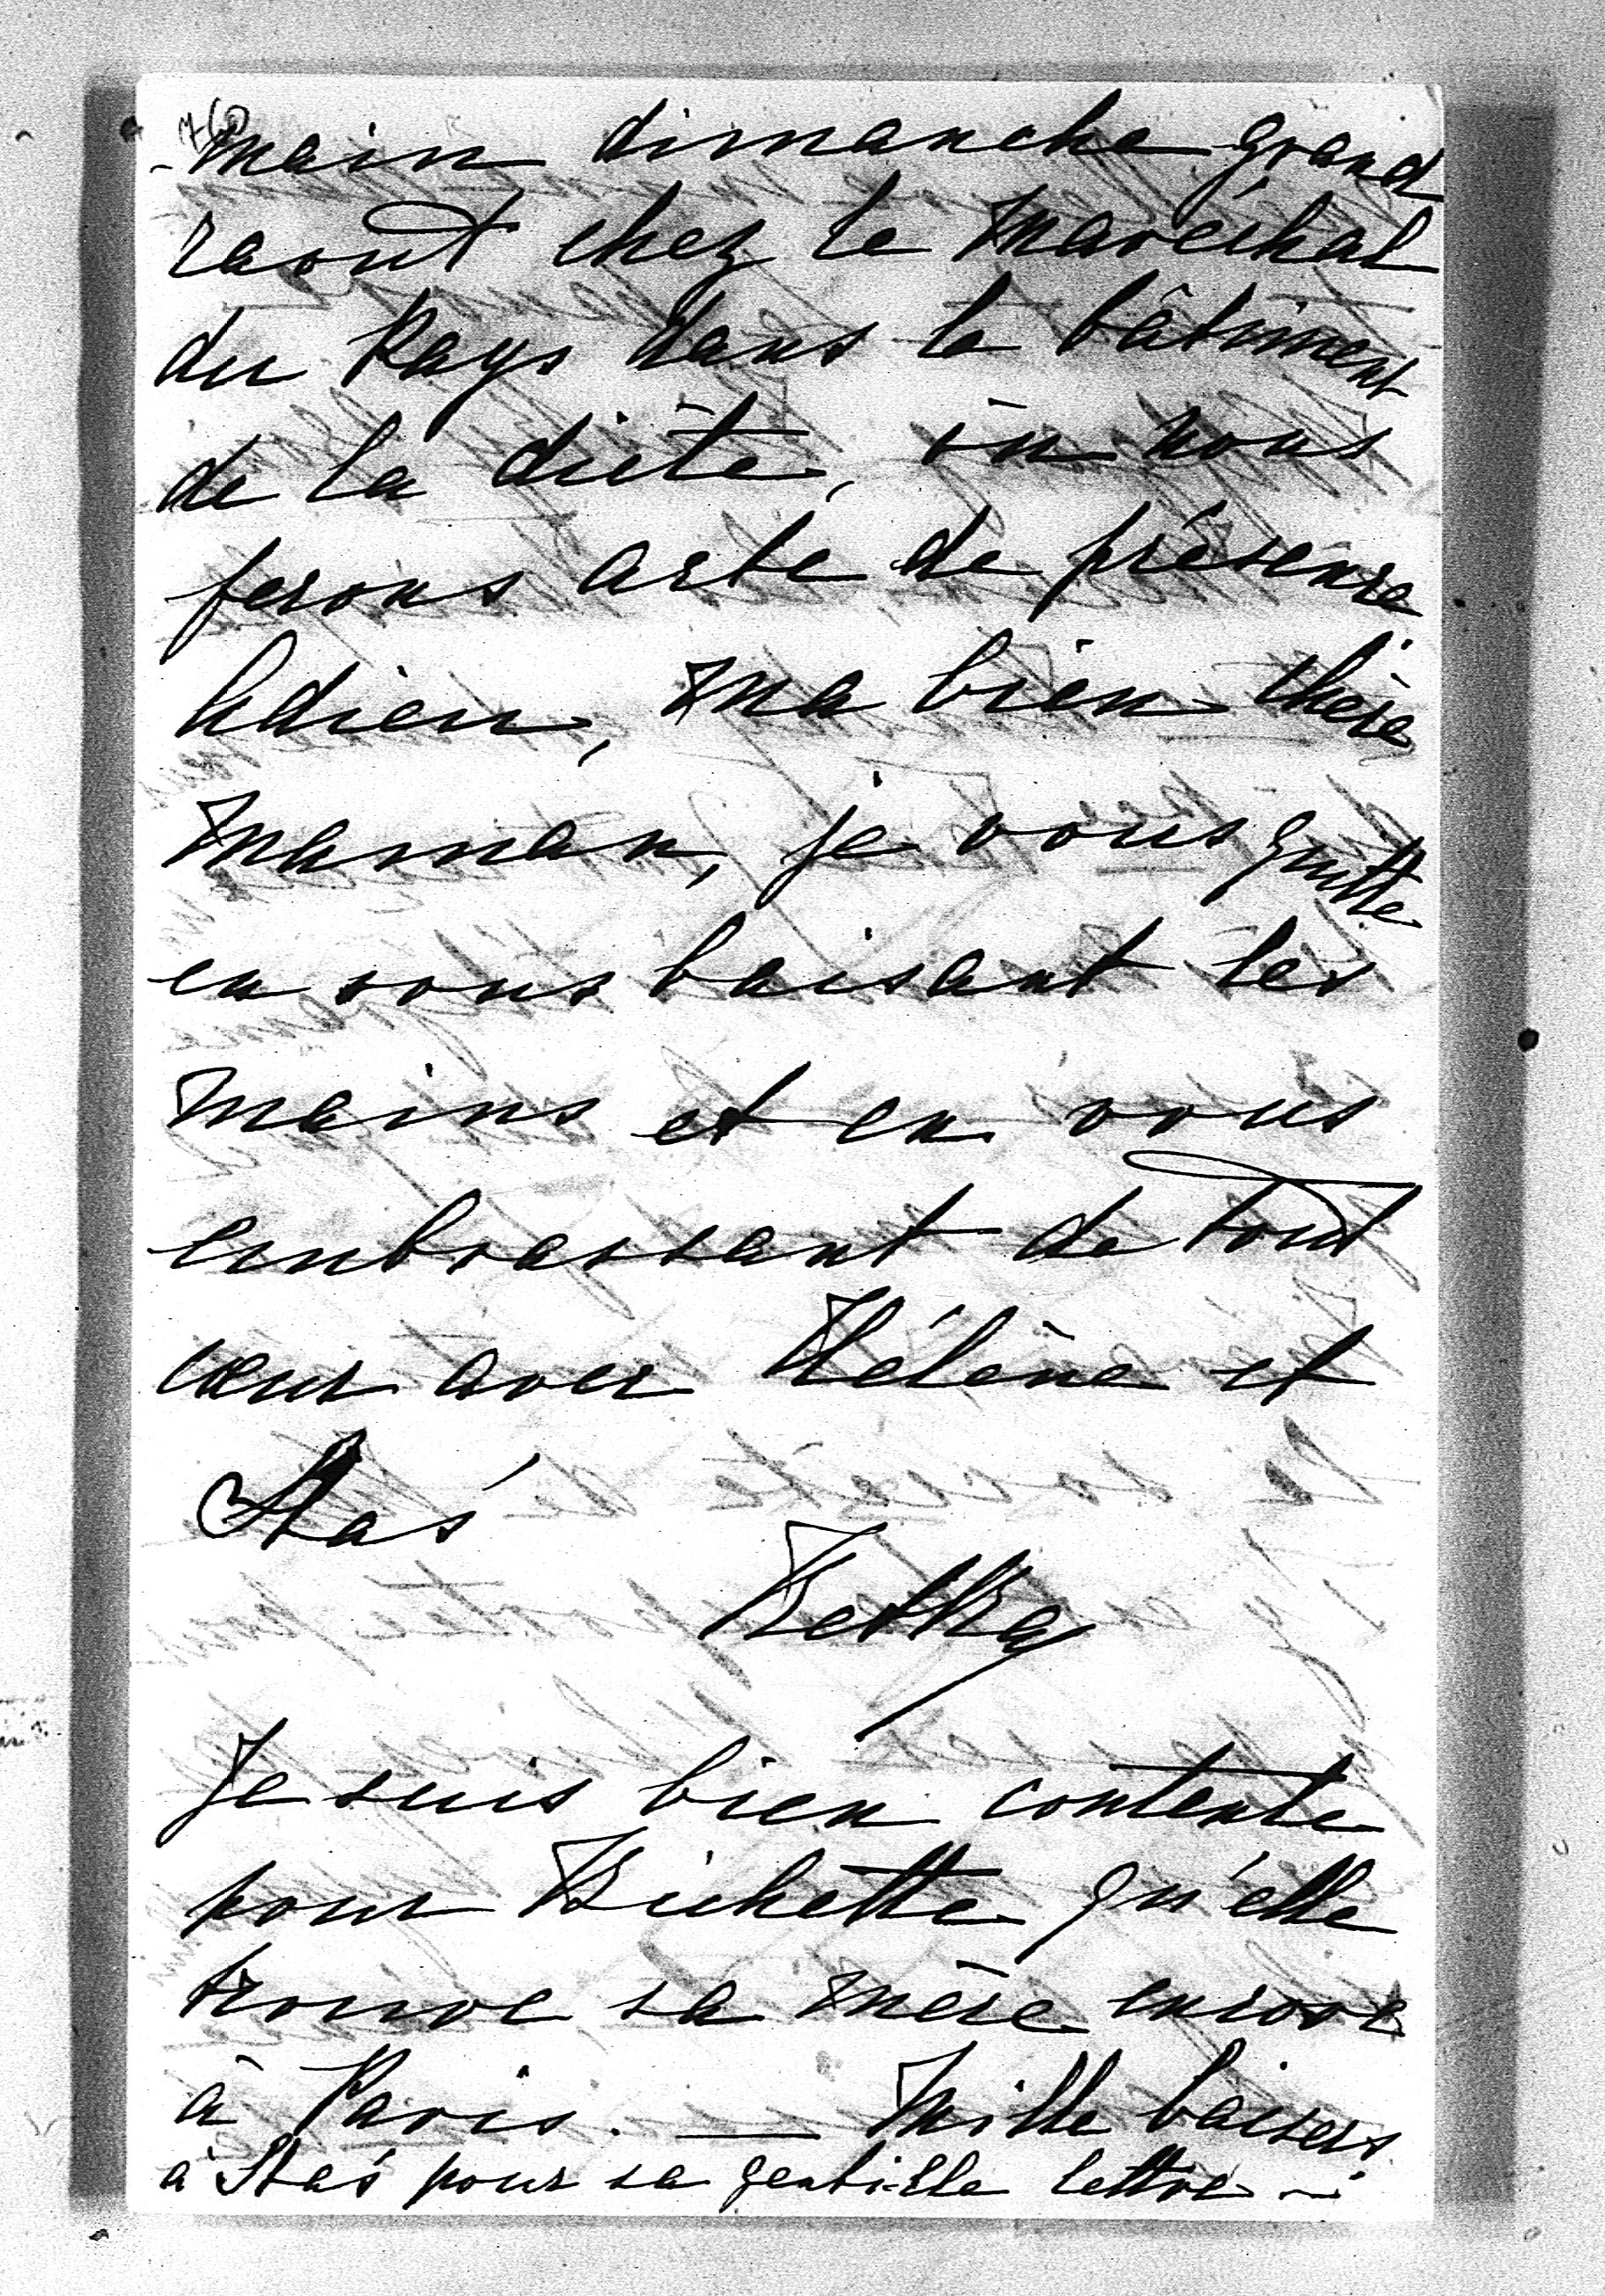 760
-main dimanche grand
raout chez le Maréchal
du Pays dans le bâtiment
de la diète, où nous
ferons acte de présence
Adieu, ma bien chère
Maman, je vous quitte
en vous baisant les
mains et en vous
embrassant de tout
cœur avec Hélène et
Staś
Betka
Je suis bien contente
pour Bichette qu'elle
trouve sa mère encore
à Paris. — Mille baisers
à Staś pour sa gentille lettre —